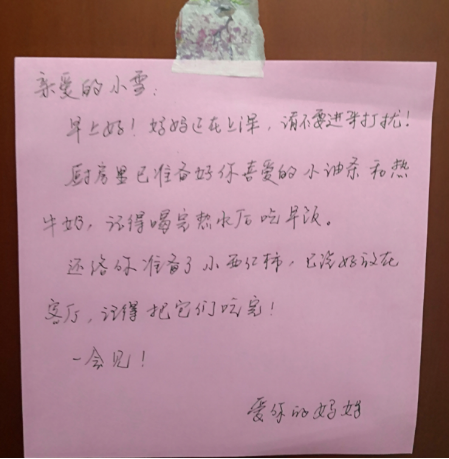 亲爱的小雪：
早上好！妈妈还在上课，请不要进来打扰！
厨房里已准备好你喜爱的小油条和热
牛奶，记得喝完热水后吃早饭。
还给你准备了小西红柿，已洗好放在
客厅，记得把它们吃完！
一会见！
爱你的妈妈